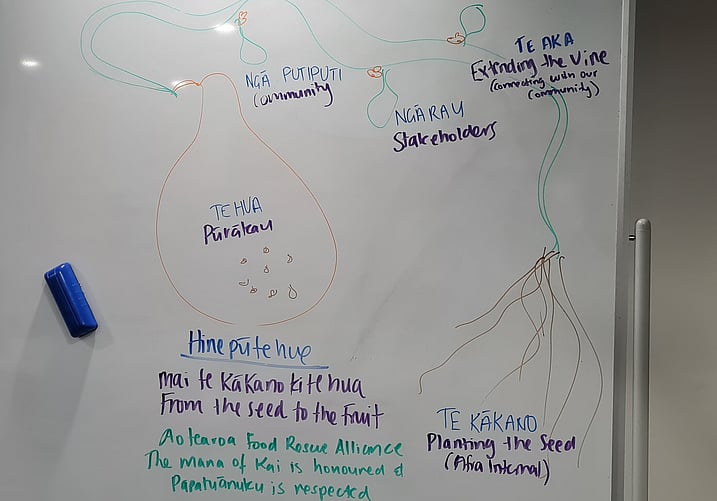 NGĀ PUTIPUTI
Community
NGĀ RAU
Stakeholders
TE AKA
Extending the Vine
(connecting with our
Community)
TE HUA
Pūrākau
Hine pū te hue
mai te Kākano ki te hua
From the seed to the Fruit
Aotearoa Food Rescue Alliance
The mana of Kai is honoured &
Papatuānuku is respected
TE KĀKANO
Planting the Seed
(Afra Internal)